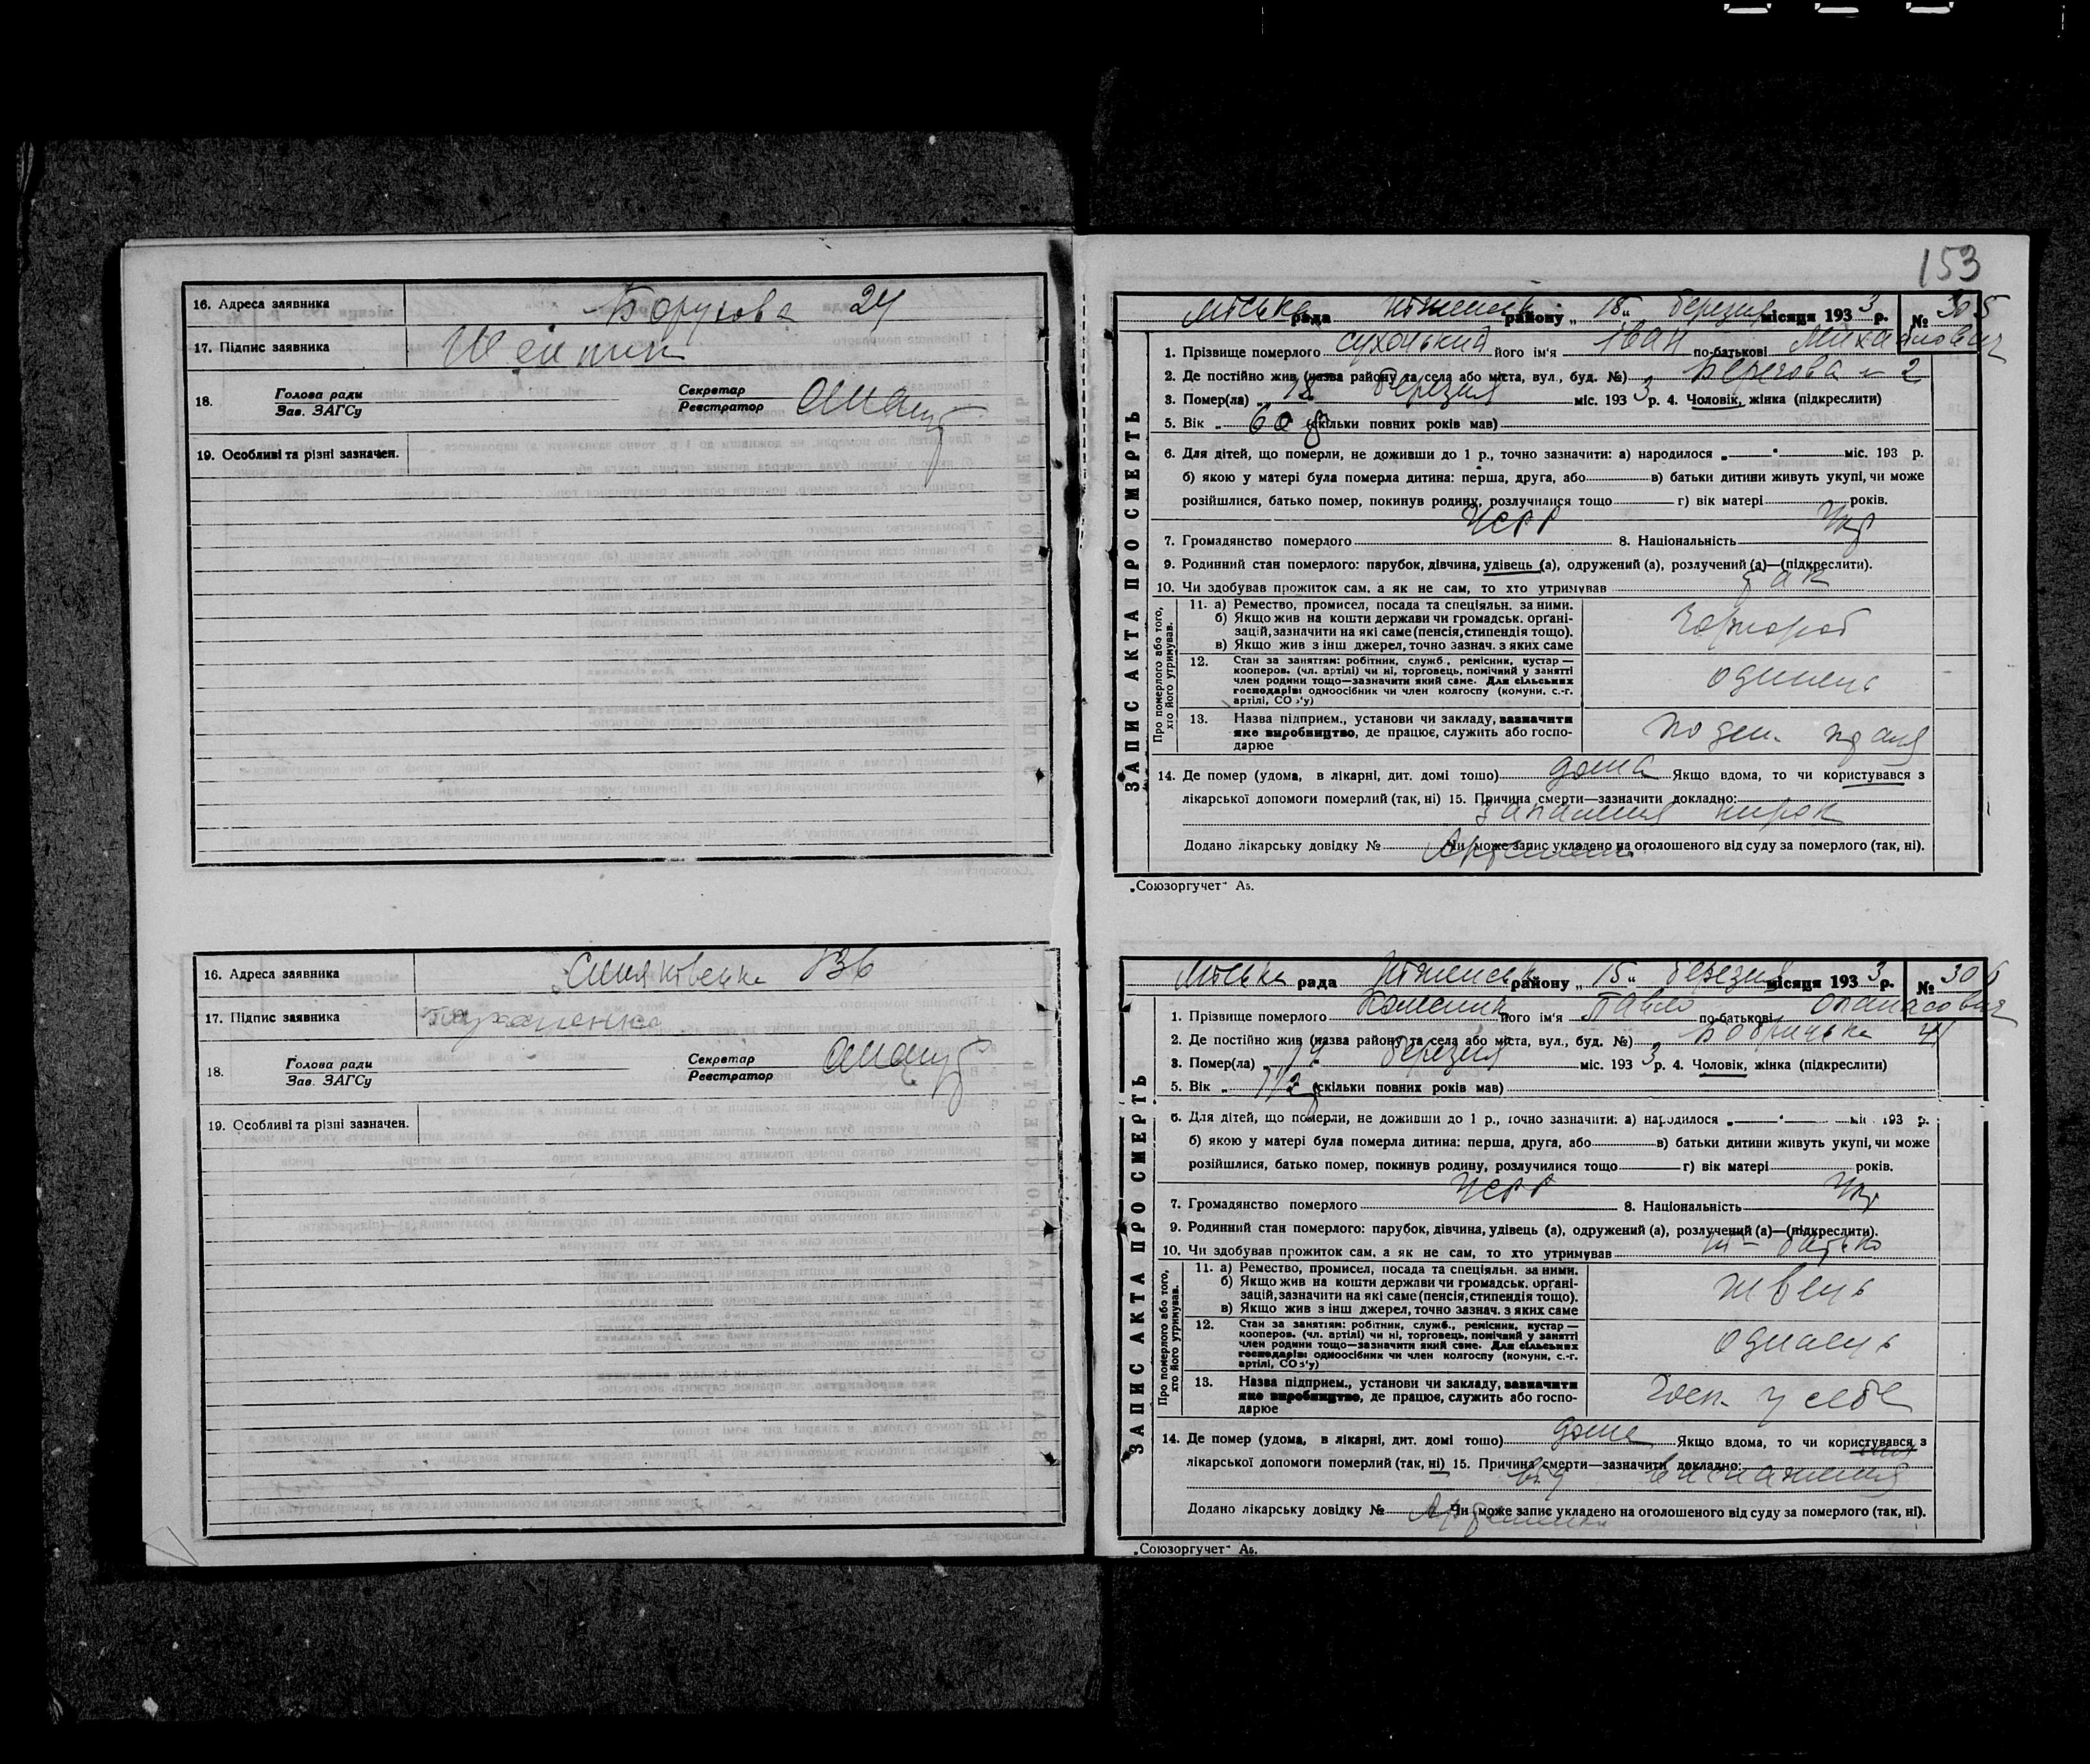 16. Адреса заявника 24
17. Підпис заявника
18. Голова ради
Зав. ЗАГСу
Секретар
Реєстратор
19. Особливі та різні зазначен.
16. Адреса заявника
17. Підпис заявника
18. Голова ради
Зав. ЗАГСу
Секретар
Реєстратор
19. Особливі та різні зазначен.
153
ЗАПИС АКТА ПРО СМЕРТЬ
Міська рада району „ 18 " березня місяця 193 3 р. № 305
1. Прізвище померлого його ім'я Іван по-батькові Михайлович
2. Де постійно жив (назва району та села або міста, вул., буд. №) Берегова № 2
3. Помер(ла) „ " березня міс. 193 3 р. 4. Чоловік, жінка (підкреслити)
5. Вік „ 60 (скільки повних років мав)
6. Для дітей, що померли, не доживши до 1 р., точно зазначити: а) народилося „ " міс. 193 р.
б) якою у матері була померла дитина: перша, друга, або в) батьки дитини живуть укупі, чи може
розійшлися, батько помер, покинув родину, розлучилися тощо г) вік матері років.
7. Громадянство померлого УСРР 8. Національність Укр
9. Родинний стан померлого: парубок, дівчина, удівець (а), одружений (а), розлучений (а)—(підкреслити).
10. Чи здобував прожиток сам, а як не сам, то хто утримував так
Про померлого або того, хто його утримував.
11. а) Ремество, промисел, посада та спеціяльн. за ними.
б) Якщо жив на кошти держави чи громадськ. органі-
зацій, зазначити на які саме (пенсія, стипендія тощо).
в) Якщо жив з інш джерел, точно зазнач. з яких саме
Чорнороб
12. Стан за заняттям: робітник, служб., ремісник, кустар—
кооперов. (чл. артілі) чи ні, торговець, помічний у занятті
член родини тощо—зазначити який саме. Для сільських
господарів: одноосібник чи член колгоспу (комуни, с.-г.
артілі, СОЗ'у)
одинець
13. Назва підприєм., установи чи закладу, зазначити
яке виробництво, де працює, служить або госпо-
дарює
14. Де помер (удома, в лікарні, дит. домі тощо) дома Якщо вдома, то чи користувався з
лікарської допомоги померлий (так, ні) 15. Причина смерти—зазначити докладно:
Запалення нирок
Додано лікарську довідку № Чи може запис укладено на оголошеного від суду за померлого (так, ні).
„Союзоргучет" А5.
ЗАПИС АКТА ПРО СМЕРТЬ
Міська рада району „ 15 " березня місяця 193 3 р. № 306
1. Прізвище померлого його ім'я Павло по-батькові Опанасович
2. Де постійно жив (назва району та села або міста, вул., буд. №)
3. Помер(ла) „ 14 " березня міс. 193 3 р. 4. Чоловік, жінка (підкреслити)
5. Вік „ (скільки повних років мав)
6. Для дітей, що померли, не доживши до 1 р., точно зазначити: а) народилося „ " міс. 193 р.
б) якою у матері була померла дитина: перша, друга, або в) батьки дитини живуть укупі, чи може
розійшлися, батько помер, покинув родину, розлучилися тощо г) вік матері років.
7. Громадянство померлого УСРР 8. Національність Укр
9. Родинний стан померлого: парубок, дівчина, удівець (а), одружений (а), розлучений (а)—(підкреслити).
10. Чи здобував прожиток сам, а як не сам, то хто утримував ні – батько
Про померлого або того, хто його утримував.
11. а) Ремество, промисел, посада та спеціяльн. за ними.
б) Якщо жив на кошти держави чи громадськ. органі-
зацій, зазначити на які саме (пенсія, стипендія тощо).
в) Якщо жив з інш джерел, точно зазнач. з яких саме
швець
12. Стан за заняттям: робітник, служб., ремісник, кустар—
кооперов. (чл. артілі) чи ні, торговець, помічний у занятті
член родини тощо—зазначити який саме. Для сільських
господарів: одноосібник чи член колгоспу (комуни, с.-г.
артілі, СОЗ'у)
одинець
13. Назва підприєм., установи чи закладу, зазначити
яке виробництво, де працює, служить або госпо-
дарює
Госп. у себе
14. Де помер (удома, в лікарні, дит. домі тощо) дома Якщо вдома, то чи користувався з
лікарської допомоги померлий (так, ні) 15. Причина смерти—зазначити докладно:
від виснаження
Додано лікарську довідку № Чи може запис укладено на оголошеного від суду за померлого (так, ні).
„Союзоргучет" А5.